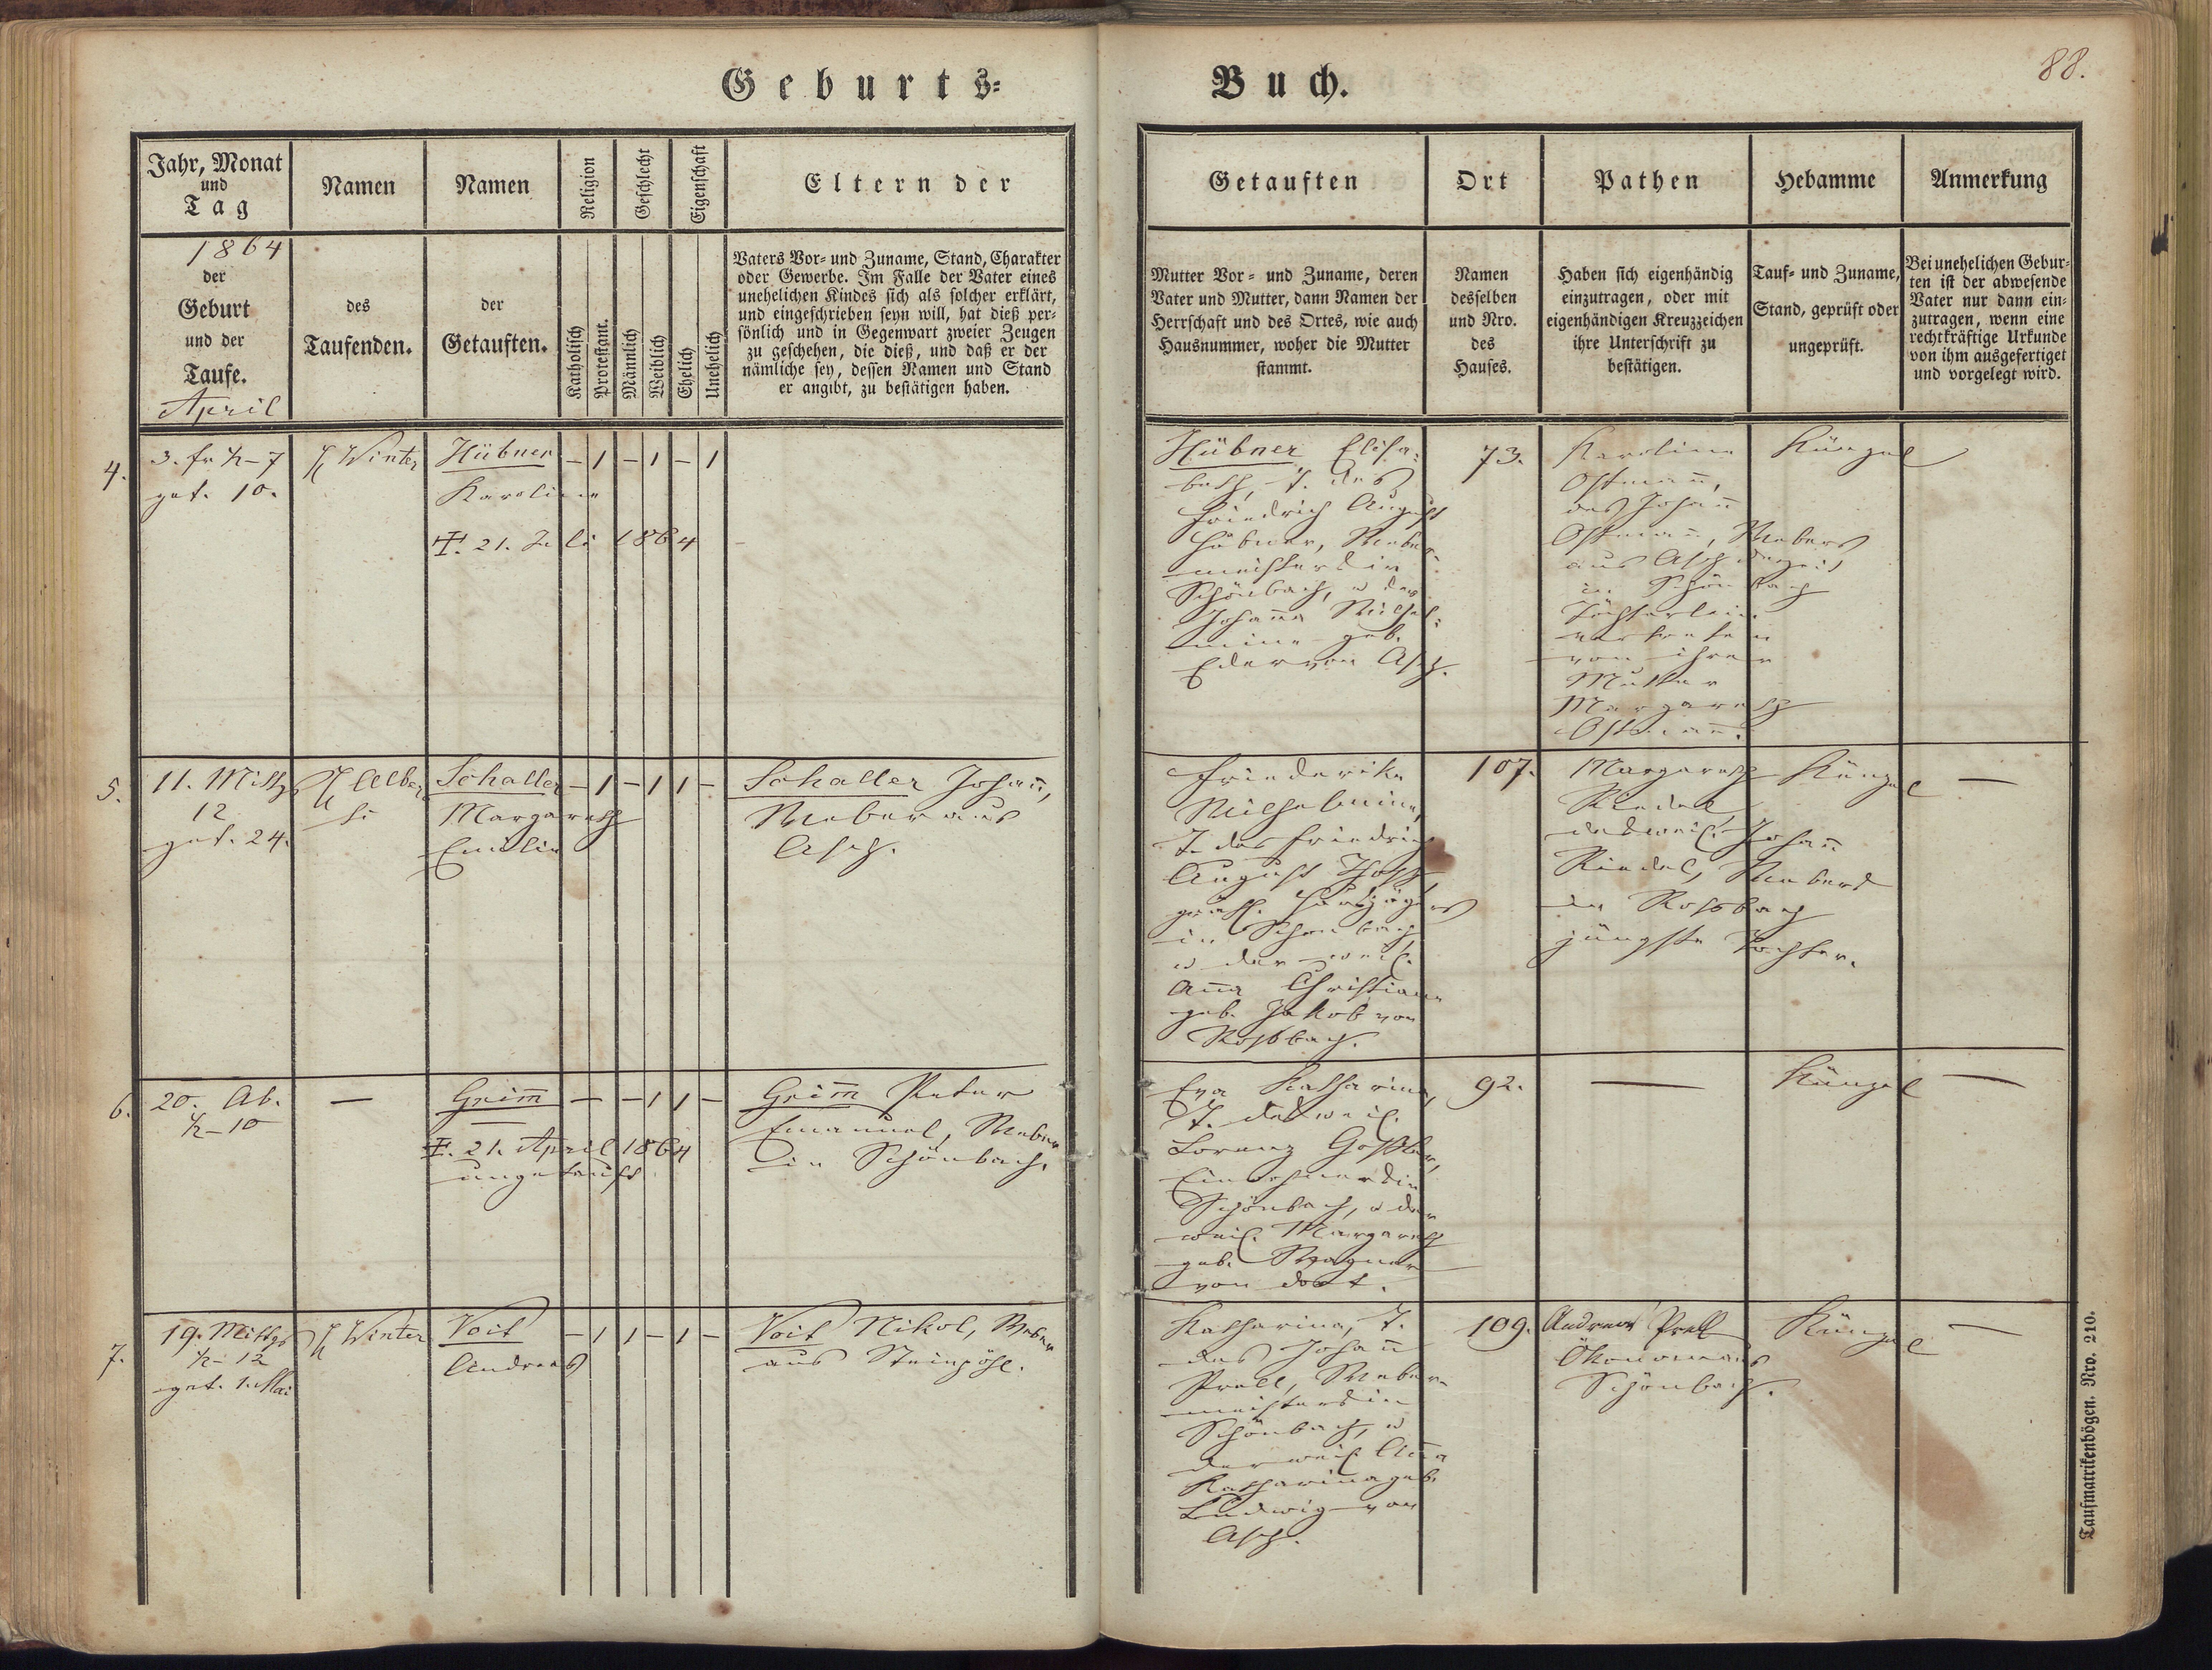 Geburts=
Buch.
88.
Jahr, Monat
und
Tag
Namen
Namen
Religion
Geschlecht
Eigenschaft
Eltern der
Getauften
Ort
Pathen
Hebamme
Anmerkung
1864
der
Geburt
und der
Taufe.
April
des
Taufenden.
der
Getauften.
Katholisch
Protestant.
Männlich
Weiblich
Ehelich
Unehelich
Vaters Vor- und Zuname, Stand, Charakter
oder Gewerbe. Im Falle der Vater eines
unehelichen Kindes sich als solcher erklärt,
und eingeschrieben seyn will, hat dieß per=
sönlich und in Gegenwart zweier Zeugen
zu geschehen, die dieß, und daß er der
nämliche sey, dessen Namen und Stand
er angibt, zu bestätigen haben.
Mutter Vor- und Zuname, deren
Vater und Mutter, dann Namen der
Herrschaft und des Ortes, wie auch
Hausnummer, woher die Mutter
stammt.
Namen
desselben
und Nro.
des
Hauses.
Haben sich eigenhändig
einzutragen, oder mit
eigenhändigen Kreuzzeichen
ihre Unterschrift zu
bestätigen.
Tauf- und Zuname,
Stand, geprüft oder
ungeprüft.
Bei unehelichen Gebur=
ten ist der abwesende
Vater nur dann ein=
zutragen, wenn eine
rechtkräftige Urkunde
von ihm ausgefertiget
und vorgelegt wird.
4.
3. fr ½-7
get. 10.
Winter
Hübner
Karoline
†. 21. Juli 1864
– 1 – 1 – 1
Hübner Elisa=
beth, T. des
Friedrich August
Hübner, Weber=
meisters in
Schönbach, u der
Johanna Wilhel=
mine geb.
Eder von Asch.
73.
Karoline
Ostmañ,
des Johañ
Ostmañ, Webers
aus Asch derzeit
in Schönbach
Töchterlein
vertreten
von ihrer
Mutter
Margareth
Ostmañ.
Künzel
5.
11. Mittg
12
get. 24.
Alber
ti
Schaller
Margareth
Emilie
– 1 – 1 1 –
Schaller Johañ,
Weber aus
Asch.
Friederike
Wilhelmine,
T. des Friedrich
August
in Schönbach
u der weil.
Aña Christiane
geb. Jakob von
Roßbach.
107.
Margareth
Riedel,
des weil. Johañ
Riedel, Webers
in Roßbach
jüngste Tochter.
Künzel
—
6.
20. Ab.
½-10
—
Grim̃
†. 21. April 1864
ungetauft
– – 1 1 –
Grim̃ Peter
Emanuel, Weber
in Schönbach.
Eva Katharina,
T. des weil.
Lorenz Goßler,
Einwohners in
Schönbach, u der
weil. Margareth
geb. Wagner
von dort.
92.
—
Künzel
—
7.
19. Mittgs
½-12
get. 1. Mai
Winter
Voit
Andreas
– 1 1 – 1 –
Voit Nikol, Weber
aus Steinpöhl.
Katharina, T.
des Johañ
Prell, Weber=
meisters in
Schönbach, u
der weil Aña
Katharina geb.
Ludwig von
Asch.
109.
Andreas Prell
Ökonom aus
Schönbach.
Künzel
—
Taufmatrikenbögen. Nro. 210.